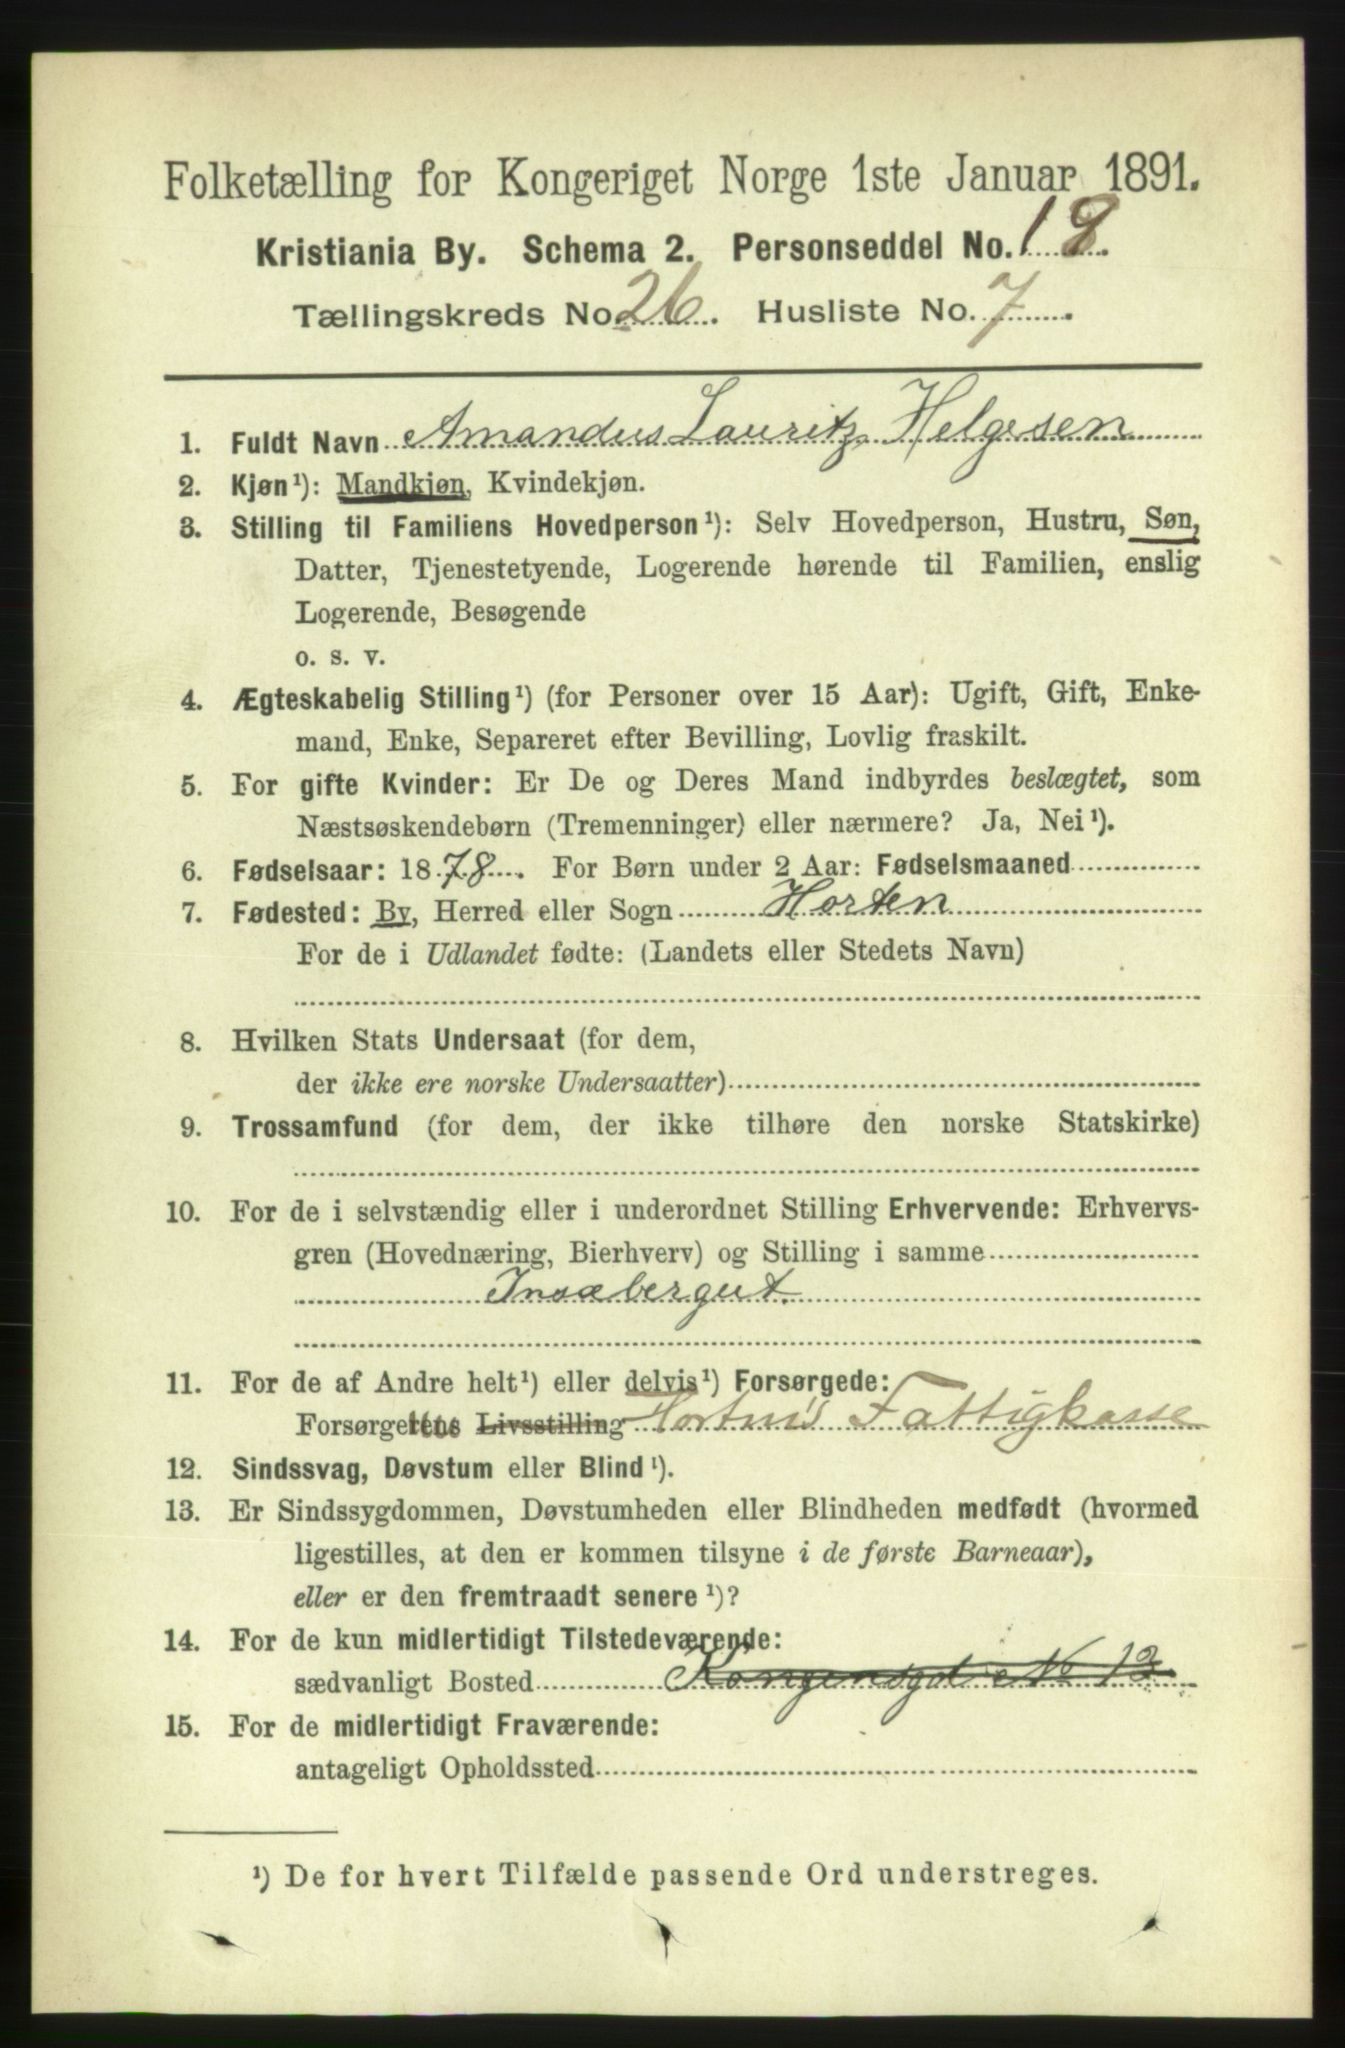 Folketælling for Kongeriget Norge 1ste Januar 1891.
Kristiania By. Schema 2. Personseddel No. 18.
Tællingskreds No. 26. Husliste No. 7.
1. Fuldt Navn Amandus Lauritz Helgesen
2. Kjøn¹): Mandkjøn, Kvindekjøn.
3. Stilling til Familiens Hovedperson¹): Selv Hovedperson, Hustru, Søn,
Datter, Tjenestetyende, Logerende hørende til Familien, enslig
Logerende, Besøgende
o. s. v.
4. Ægteskabelig Stilling¹) (for Personer over 15 Aar): Ugift, Gift, Enke-
mand, Enke, Separeret efter Bevilling, Lovlig fraskilt.
5. For gifte Kvinder: Er De og Deres Mand indbyrdes beslægtet, som
Næstsøskendebørn (Tremenninger) eller nærmere? Ja, Nei¹).
6. Fødselsaar: 1878. For Børn under 2 Aar: Fødselsmaaned
7. Fødested: By, Herred eller Sogn Horten
For de i Udlandet fødte: (Landets eller Stedets Navn)
8. Hvilken Stats Undersaat (for dem,
der ikke ere norske Undersaatter)
9. Trossamfund (for dem, der ikke tilhøre den norske Statskirke)
10. For de i selvstændig eller i underordnet Stilling Erhvervende: Erhvervs-
gren (Hovednæring, Bierhverv) og Stilling i samme
11. For de af Andre helt¹) eller delvis¹) Forsørgede:
Forsørgerens Livsstilling Hortens Fattigkasse
12. Sindssvag, Døvstum eller Blind¹).
13. Er Sindssygdommen, Døvstumheden eller Blindheden medfødt (hvormed
ligestilles, at den er kommen tilsyne i de første Barneaar),
eller er den fremtraadt senere¹)?
14. For de kun midlertidigt Tilstedeværende:
sædvanligt Bosted Kongensgd No 13.
15. For de midlertidigt Fraværende:
antageligt Opholdssted
¹) De for hvert Tilfælde passende Ord understreges.